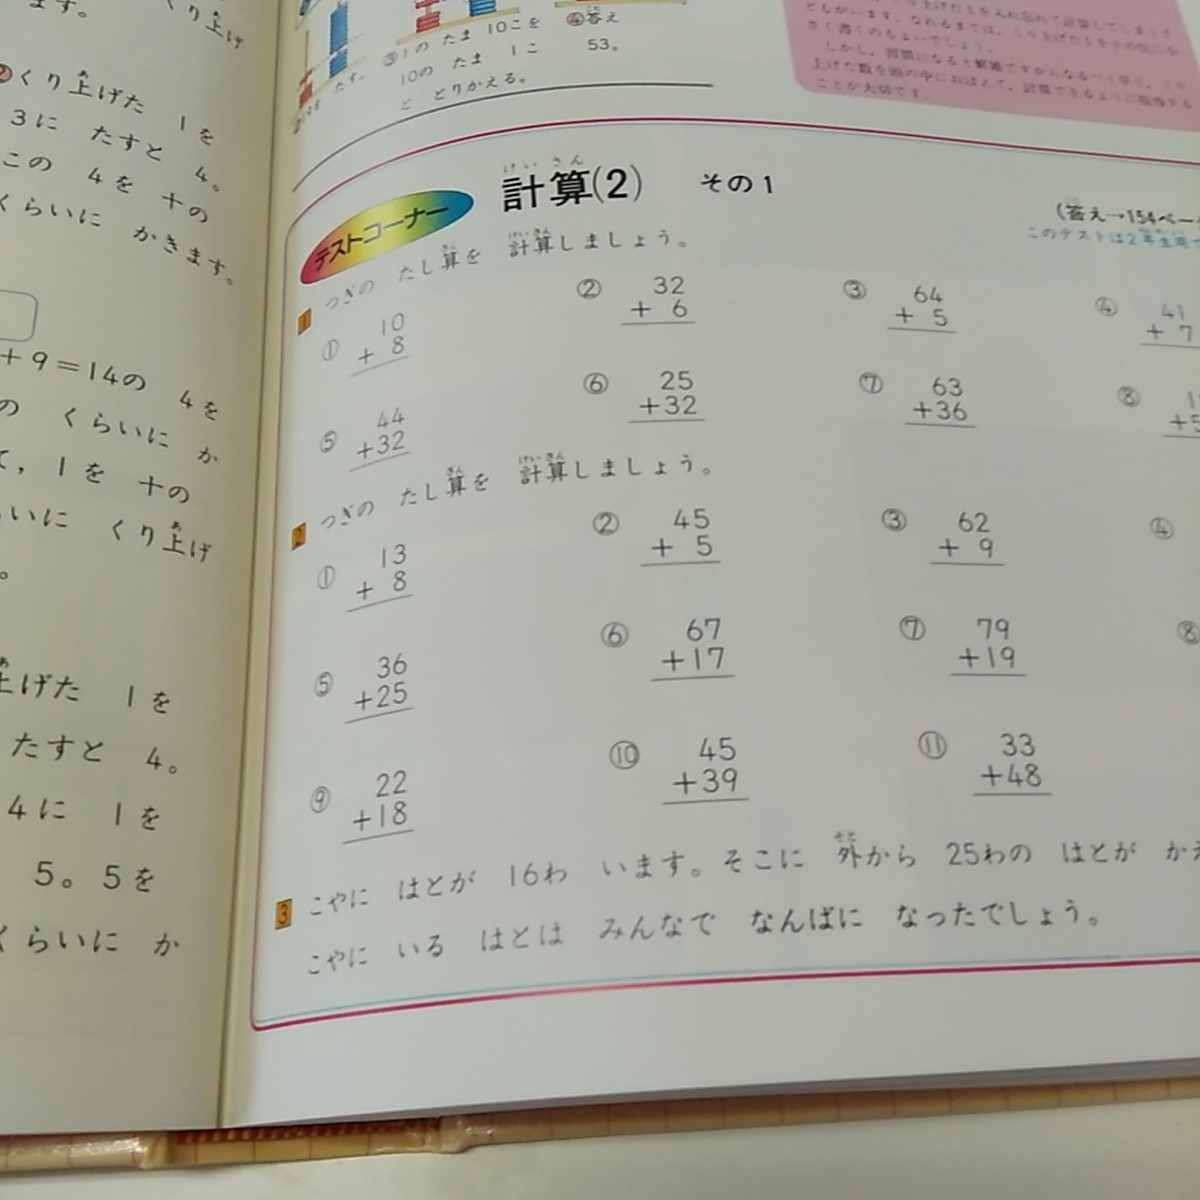 ます。
くり上げ
❷くり上げた 1を
3に たすと 4。
この 4を 十の
くらいに かきます。
+9=14の 4を
の くらいに か
て, 1を 十の
いに くり上げ
。
上げた 1を
たすと 4。
4に 1を
5。5を
くらいに か
たす。
③1の たま 10こを
10の たま 1こ
と とりかえる。
④答え
53。
さく書くのもよいでしょう。
ことが大切です。
テストコーナー
計算(2) その1
けい さん
(答え→154ペー
このテストは2年生用で
1 つぎの たし算を 計算しましょう。
① 10
+ 8
② 32
+ 6
③ 64
+ 5
④ 41
+ 7
⑤ 44
+32
⑥ 25
+32
⑦ 63
+36
⑧
2 つぎの たし算を 計算しましょう。
① 13
+ 8
② 45
+ 5
③ 62
+ 9
④
⑤ 36
+25
⑥ 67
+17
⑦ 79
+19
⑧
⑨ 22
+18
⑩ 45
+39
⑪ 33
+48
3 こやに はとが 16わ います。そこに 外から 25わの はとが かえ
こやに いる はとは みんなで なんばに なったでしょう。